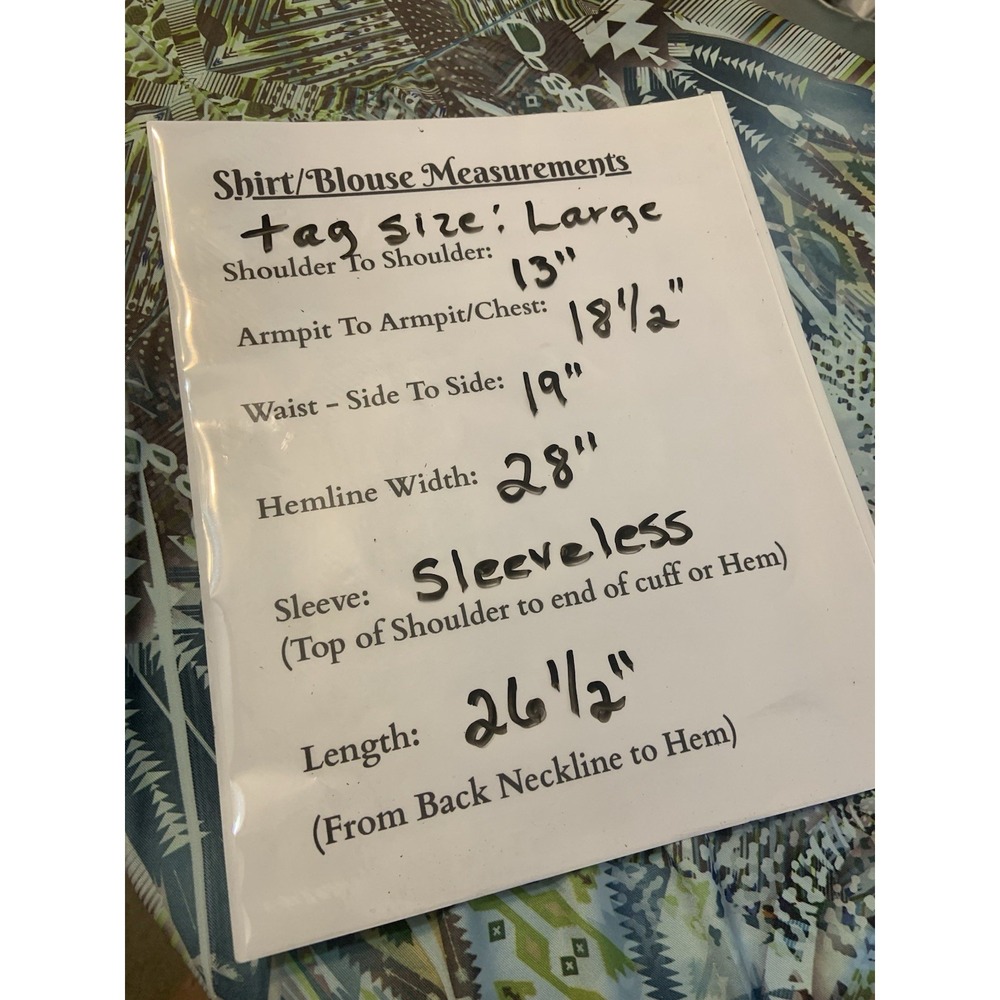 Shirt/Blouse Measurements
tag size: Large
Shoulder To Shoulder: 13"
Armpit To Armpit/Chest: 18 1/2"
Waist – Side To Side: 19"
Hemline Width: 28"
Sleeve: Sleeveless
(Top of Shoulder to end of cuff or Hem)
Length: 26 1/2"
(From Back Neckline to Hem)